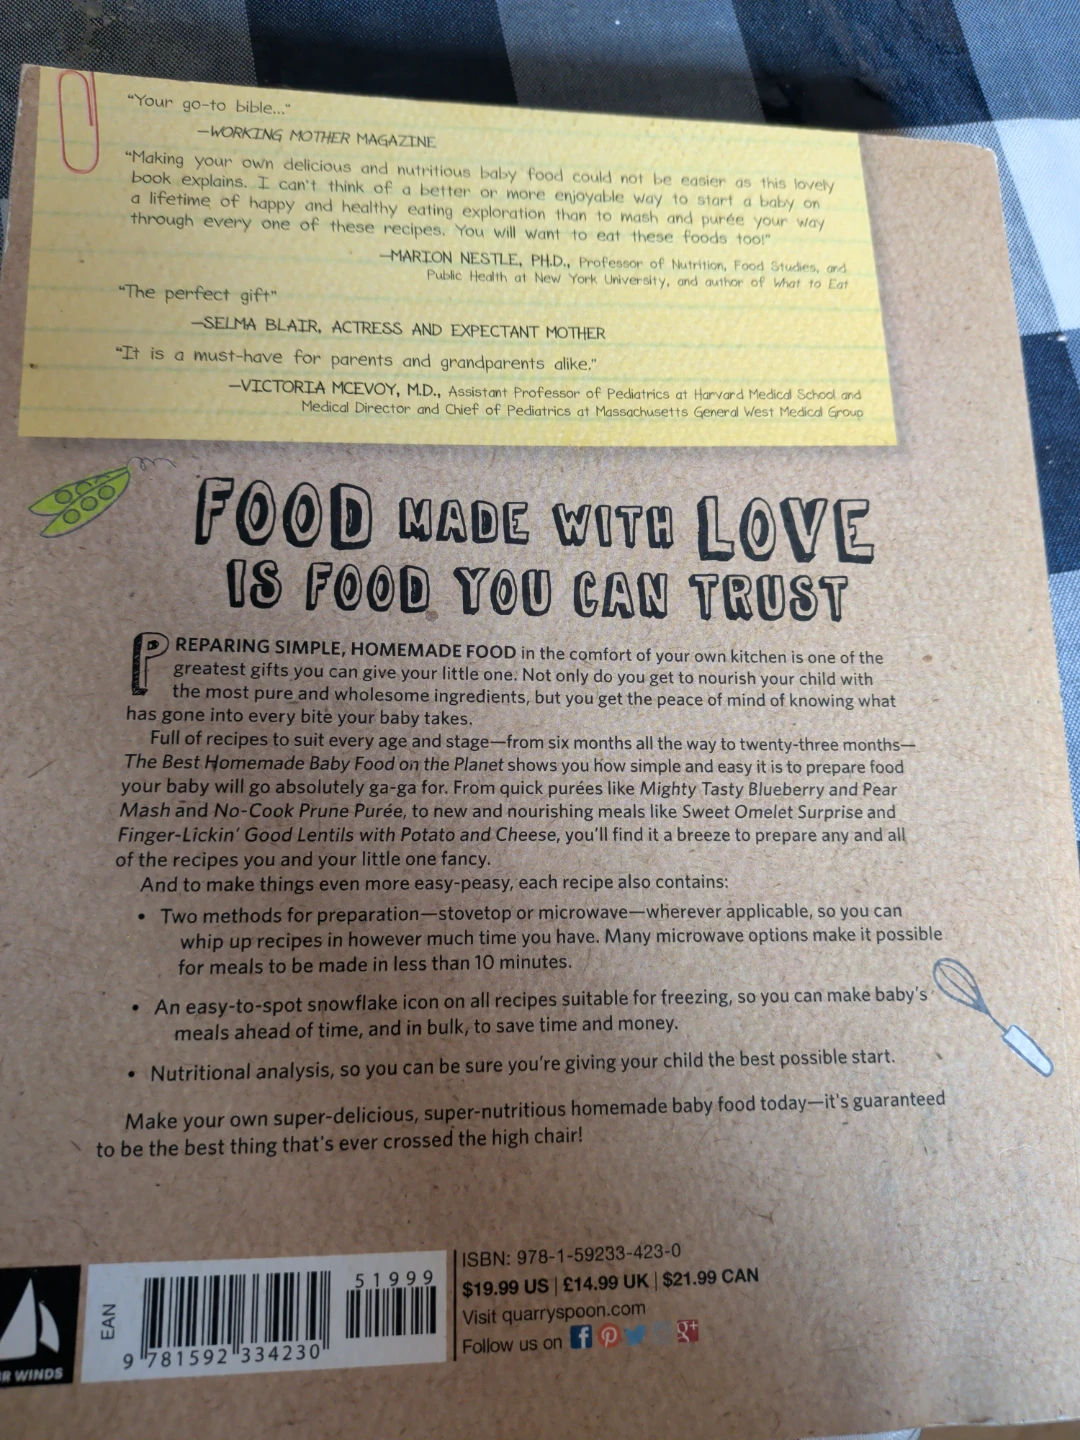 "Your go-to bible..."
—WORKING MOTHER MAGAZINE
"Making your own delicious and nutritious baby food could not be easier as this lovely
book explains. I can't think of a better or more enjoyable way to start a baby on
a lifetime of happy and healthy eating exploration than to mash and purée your way
through every one of these recipes. You will want to eat these foods too!"
—MARION NESTLE, PH.D., Professor of Nutrition, Food Studies, and
Public Health at New York University, and author of What to Eat
"The perfect gift"
—SELMA BLAIR, ACTRESS AND EXPECTANT MOTHER
"It is a must-have for parents and grandparents alike."
—VICTORIA MCEVOY, M.D., Assistant Professor of Pediatrics at Harvard Medical School and
Medical Director and Chief of Pediatrics at Massachusetts General West Medical Group
FOOD MADE WITH LOVE
IS FOOD YOU CAN TRUST
PREPARING SIMPLE, HOMEMADE FOOD in the comfort of your own kitchen is one of the
greatest gifts you can give your little one. Not only do you get to nourish your child with
the most pure and wholesome ingredients, but you get the peace of mind of knowing what
has gone into every bite your baby takes.
Full of recipes to suit every age and stage—from six months all the way to twenty-three months—
The Best Homemade Baby Food on the Planet shows you how simple and easy it is to prepare food
your baby will go absolutely ga-ga for. From quick purées like Mighty Tasty Blueberry and Pear
Mash and No-Cook Prune Purée, to new and nourishing meals like Sweet Omelet Surprise and
Finger-Lickin' Good Lentils with Potato and Cheese, you'll find it a breeze to prepare any and all
of the recipes you and your little one fancy.
And to make things even more easy-peasy, each recipe also contains:
• Two methods for preparation—stovetop or microwave—wherever applicable, so you can
whip up recipes in however much time you have. Many microwave options make it possible
for meals to be made in less than 10 minutes.
• An easy-to-spot snowflake icon on all recipes suitable for freezing, so you can make baby's
meals ahead of time, and in bulk, to save time and money.
• Nutritional analysis, so you can be sure you're giving your child the best possible start.
Make your own super-delicious, super-nutritious homemade baby food today—it's guaranteed
to be the best thing that's ever crossed the high chair!
R WINDS
EAN
9 781592 334230
51999
ISBN: 978-1-59233-423-0
$19.99 US | £14.99 UK | $21.99 CAN
Visit quarryspoon.com
Follow us on f g+